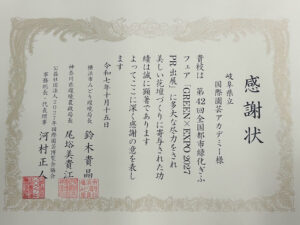 感謝状
岐阜県立
国際園芸アカデミー様
貴校は 第42回全国都市緑化ぎふ
フェア「GREEN×EXPO 2027
PR出展」に多大な尽力をされ
美しい花壇づくりに寄与された功
績は誠に顕著であります
よってここに深く感謝の意を表し
ます
令和七年十月十五日
横浜市みどり環境局長
鈴木貴晶
神奈川県環境農政局長
尾﨑美貴江
公益社団法人2027年国際園芸博覧会協会
事務総長・代表理事
河村正人